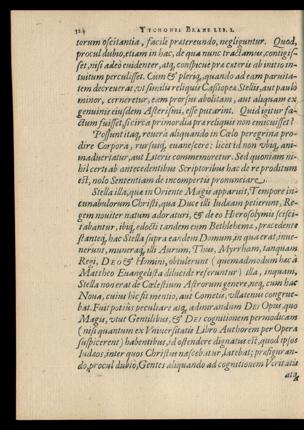 324 TYCHONIS BRAHE LIB. I.
torum oscitantia, facile prætereundo, negliguntur. Quod,
procul dubio, etiam in hac, de qua nunc tractamus, contigis-
set, nisi adeò euidenter, atq; conspicuè præ cæteris ab initio in-
tuitum perculisset. Cum & pleriq; quando ad eam paruita-
tem decreuerat, vt similis reliquis Cassiopeæ Stellis, aut paulò
minor, cerneretur, eam prorsus abolitam, aut aliquam ex
genuinis eiusdem Asterismi, esse putârint. Quid igitur fa-
ctum fuisset, si circa primordia præ reliquis non emicuisset?
Possunt itaq; reuerà aliquando in Cœlo peregrina pro-
dire Corpora, rursusq; euanescere: licet id non vbiq; ani-
maduertatur, aut Literis commemoretur. Sed quoniam ni-
hil certi ab antecedentibus Scriptoribus hac de re proditum
est, nolo Sententiam de incompertis pronunciare.
Stella illa, quæ in Oriente Magis apparuit, Tempore in-
cunabulorum Christi, qua Duce illi Iudæam petierunt, Re-
gem nouiter natum adoraturi, & de eo Hierosolymis sci­sci-
tabantur, ibiq; edocti tandem eum Bethlehemæ, præcedente
stanteq; hac Stella supra tandem Domum, in qua erat, inue-
nerunt, muneraq; illi Aurum, Thus, Myrrham, tanquam
Regi, DEO & Homini, obtulerunt (quemadmodum hæc à
Mattheo Euangelista dilucidè referuntur) illa, inquam,
Stella non erat de Cœlestium Astrorum genere, neq; cum hac
Noua, cuius hic fit mentio, aut Cometis, vllatenus congrue-
bat. Fuit potiùs peculiare atq; admirandum DEI Opus, quo
Magis, vtut Gentilibus, & DEI cognitionem permodicam
(nisi quantum ex Vniuersitatis Libro Authorem per Opera
suspicerent) habentibus, id ostendere dignatus est, quod ipsos
Iudæos, inter quos Christus nascebatur, latebat; præfiguran-
do, procul dubio, Gentes aliquando ad cognitionem Veritatis
atq;